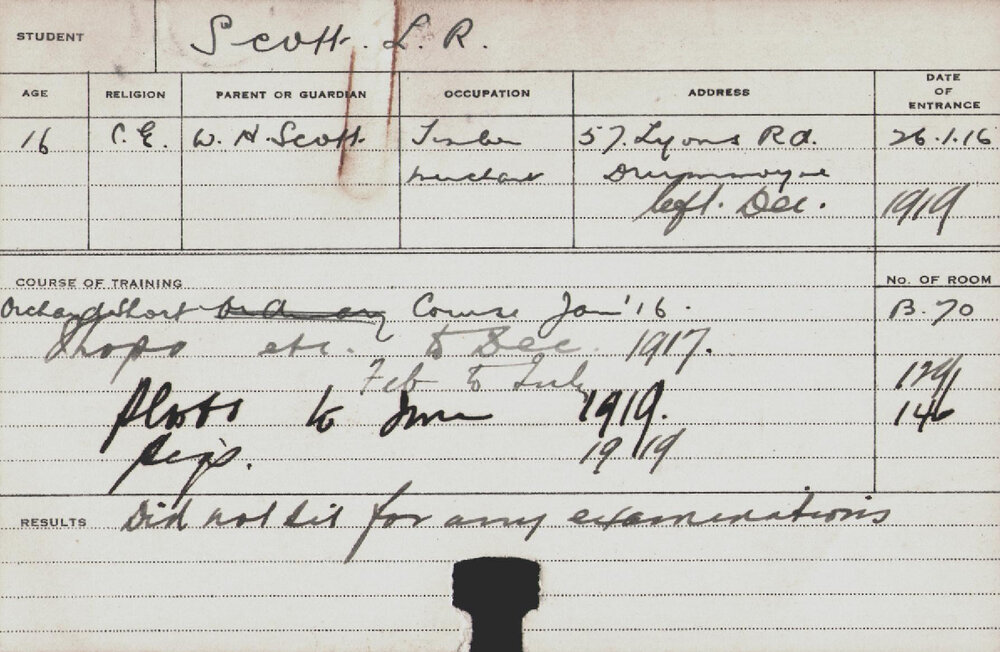 STUDENT Scott. L. R.
AGE RELIGION PARENT OR GUARDIAN OCCUPATION ADDRESS DATE OF ENTRANCE
16 C.E. W. H. Scott. Timber 57. Lyons Rd. 26.1.16
Merchant Drummoyne
left. Dec. 1919
COURSE OF TRAINING No. OF ROOM
Orchard Short Course Jan '16. B.70
Shops etc. to Dec. 1917.
Feb to July 129
to June 1919. 146
Pigs. 1919
RESULTS Did not sit for any examinations